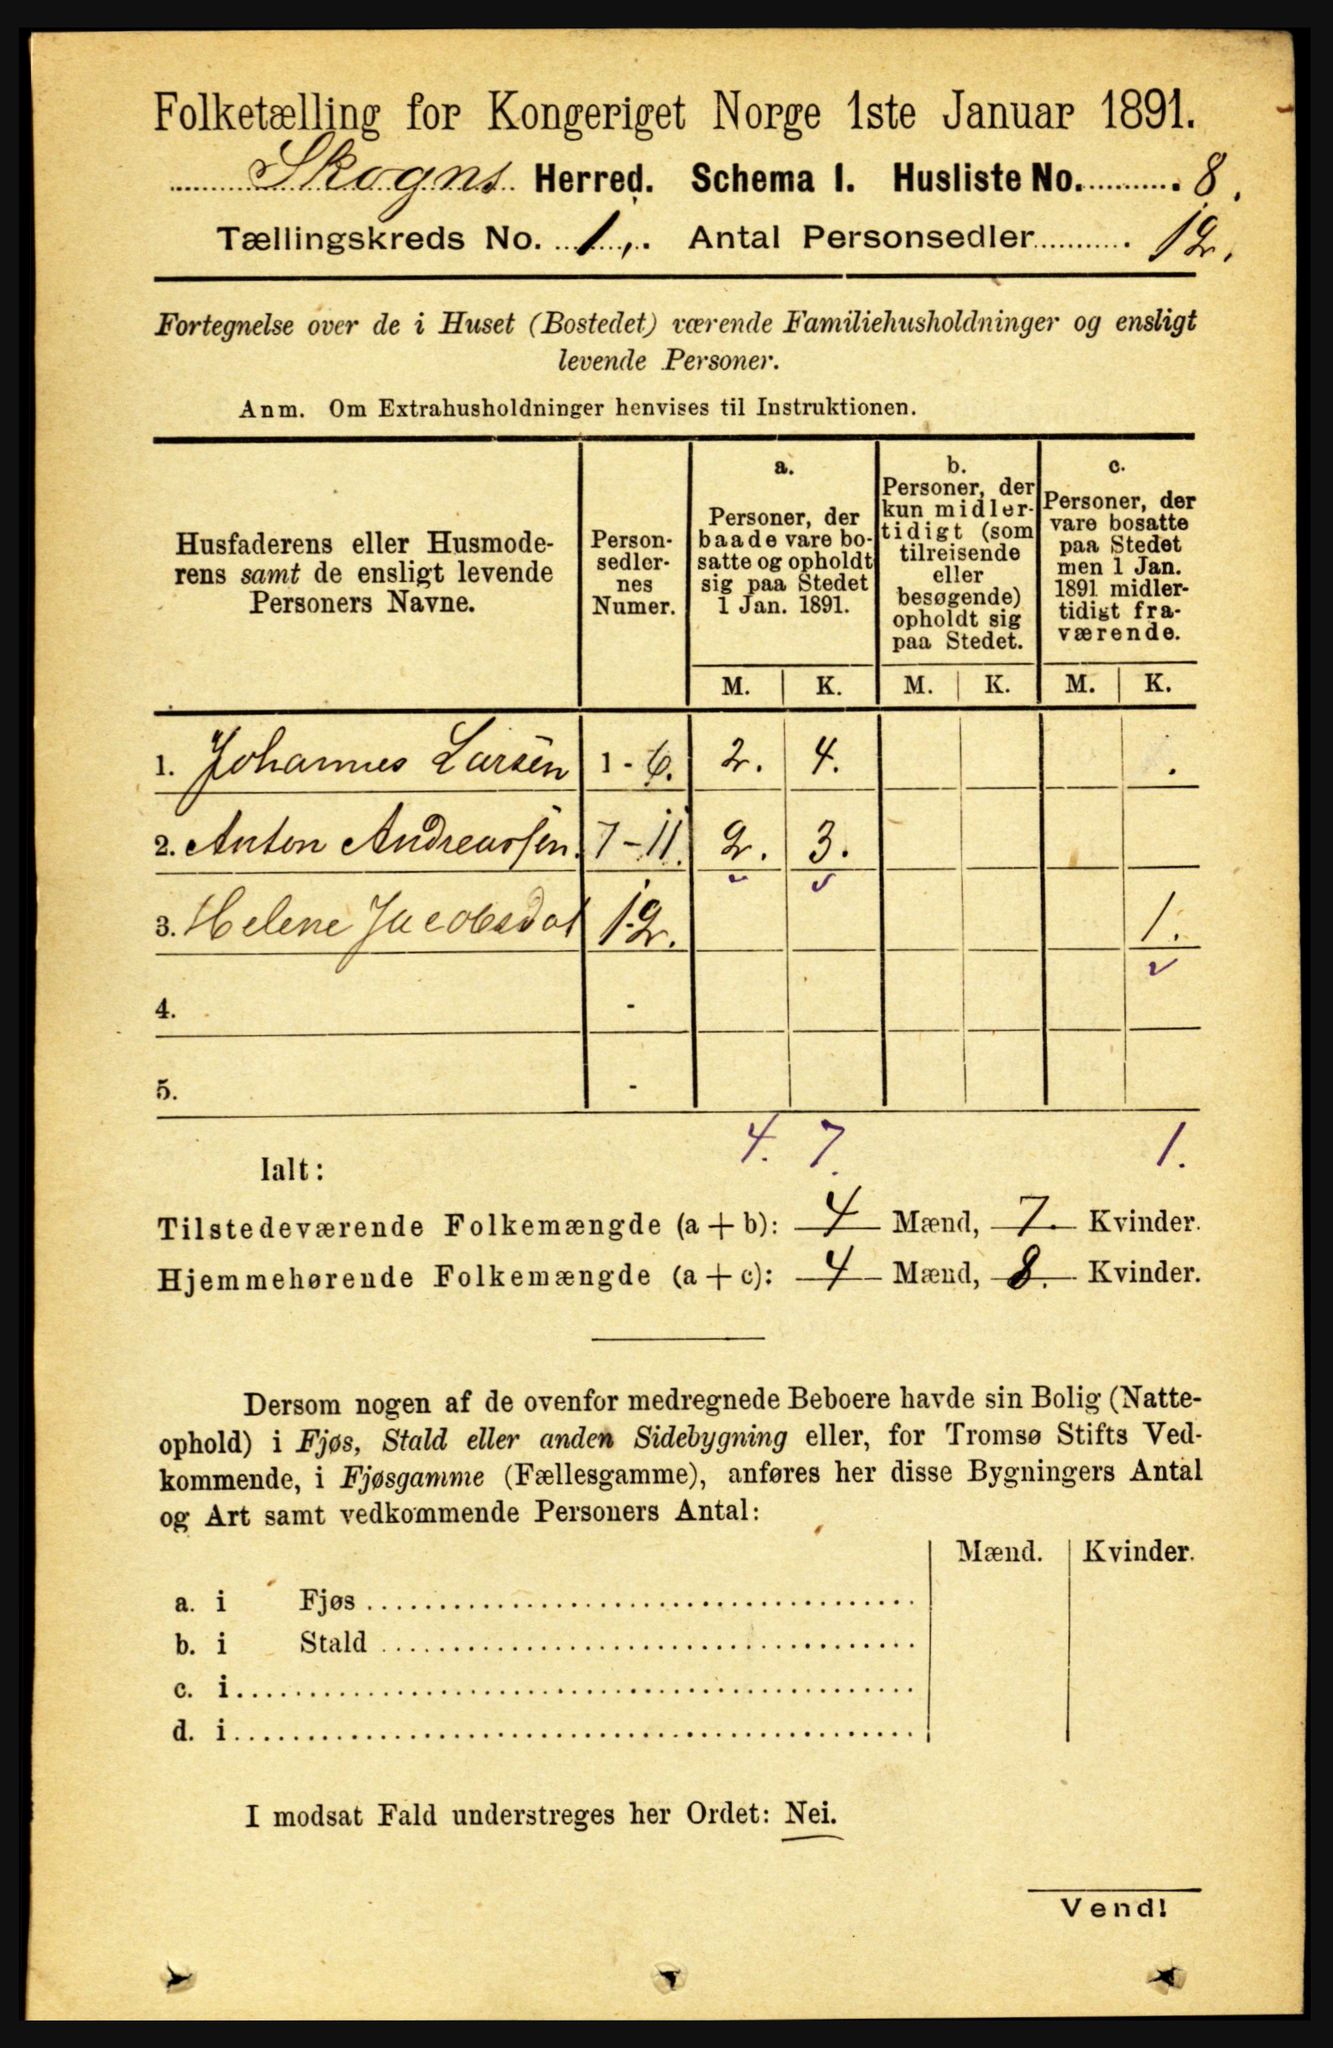 Folketælling for Kongeriget Norge 1ste Januar 1891.
Skogns Herred. Schema I. Husliste No. 8.
Tællingskreds No. 1. Antal Personsedler 12.
Fortegnelse over de i Huset (Bostedet) værende Familiehusholdninger og ensligt
levende Personer.
Anm. Om Extrahusholdninger henvises til Instruktionen.
Husfaderens eller Husmode-
rens samt de ensligt levende
Personers Navne.
Person-
sedler-
nes
Numer.
a.
Personer, der
baade vare bo-
satte og opholdt
sig paa Stedet
1 Jan. 1891.
b.
Personer, der
kun midler-
tidigt (som
tilreisende
eller
besøgende)
opholdt sig
paa Stedet.
c.
Personer, der
vare bosatte
paa Stedet
men 1 Jan.
1891 midler-
tidigt fra-
værende.
M. K. M. K. M. K.
1. Johannes Larsen 1 - 6. 2. 4.
2. Anton Andreassen. 7 - 11. 2. 3.
3. Helene Jacobsdat 12. 1.
4. -
5. -
Ialt: 4. 7. 1.
Tilstedeværende Folkemængde (a + b): 4 Mænd, 7. Kvinder.
Hjemmehørende Folkemængde (a + c): 4 Mænd, 8. Kvinder.
Dersom nogen af de ovenfor medregnede Beboere havde sin Bolig (Natte-
ophold) i Fjøs, Stald eller anden Sidebygning eller, for Tromsø Stifts Ved-
kommende, i Fjøsgamme (Fællesgamme), anføres her disse Bygningers Antal
og Art samt vedkommende Personers Antal:
Mænd. Kvinder.
a. i Fjøs
b. i Stald
c. i
d. i
I modsat Fald understreges her Ordet: Nei.
Vend!